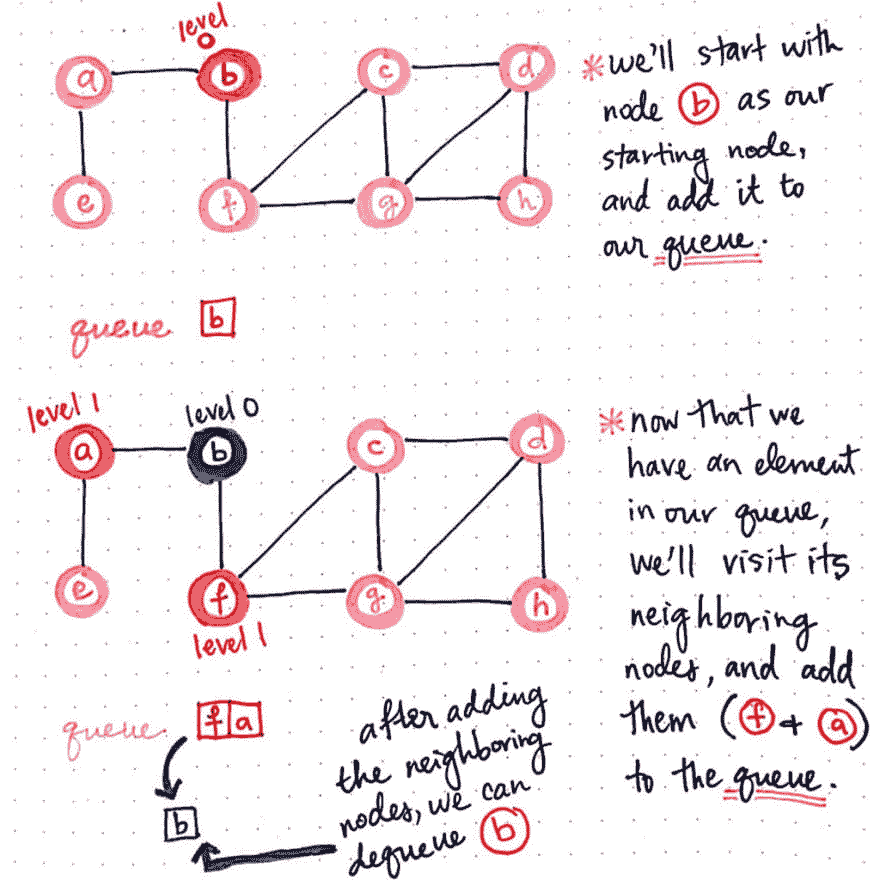 level
0
a
b
c
d
e
f
g
h
*we'll start with
node b as our
starting node,
and add it to
our queue.
queue b
level 1
level 0
a
b
c
d
e
f
g
h
level 1
*now that we
have an element
in our queue,
we'll visit its
neighboring
nodes, and add
them (f + a)
to the queue.
queue f a
b
after adding
the neighboring
nodes, we can
dequeue b